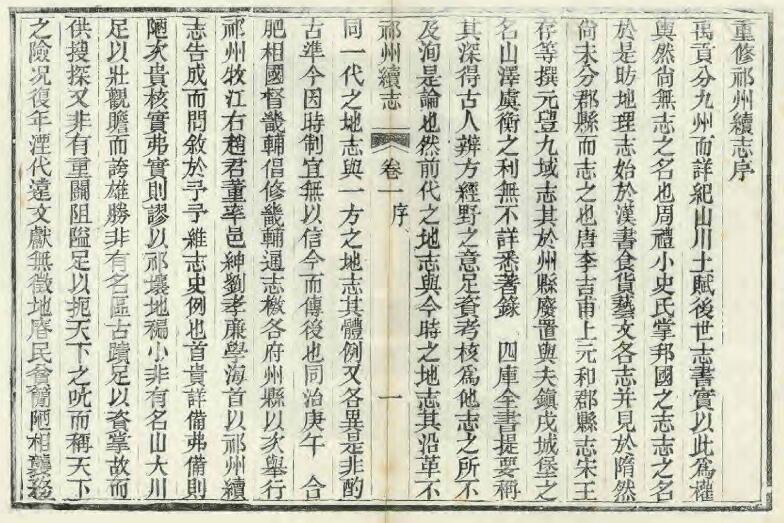 重修祁州續志序
禹貢分九州而詳紀山川土賦後世志書實以此為權
輿然尚無志之名也周禮小史氏掌邦國之志志之名
於是昉地理志始於漢書食貨藝文各志并見於隋然
尚未分郡縣而志之也唐李吉甫上元和郡縣志宋王
存等撰元豐九域志其於州縣廢置與夫鎮戍城堡之
名山澤虞衡之利無不詳悉著錄　四庫全書提要稱
其深得古人辨方經野之意足資考核為他志之所不
及洵是論也然前代之地志與今時之地志其沿革不
祁州續志　卷一　序　一
同一代之地志與一方之地志其體例又各異是非酌
古準今因時制宜無以信今而傳後也同治庚午　合
肥相國督畿輔倡修畿輔通志檄各府州縣以次舉行
祁州牧江右趙君董率邑紳劉孝廉學海首以祁州續
志告成而問敘於予予維志史例也首貴詳備弗備則
陋次貴核實弗實則謬以祁壤地褊小非有名山大川
足以壯觀瞻而誇雄勝非有名區古蹟足以資掌故而
供搜探又非有重關阻隘足以扼天下之吭而稱天下
之險況復年湮代遠文獻無徵地瘠民貧簡陋相襲務